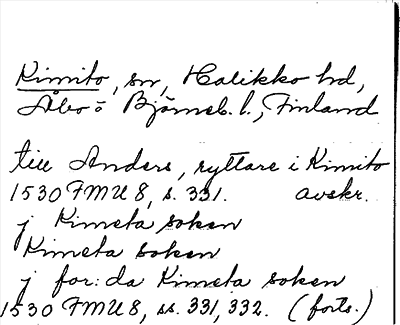 Kimito, sn, Halikko hd,
Åbo o Björneb. l., Finland
till Anders, ryttare i Kimito
1530 FMU 8, s. 331. avskr.
j Kimeta soken
Kimeta soken
j for:da Kimeta soken
1530 FMU 8, ss. 331, 332. (forts.)